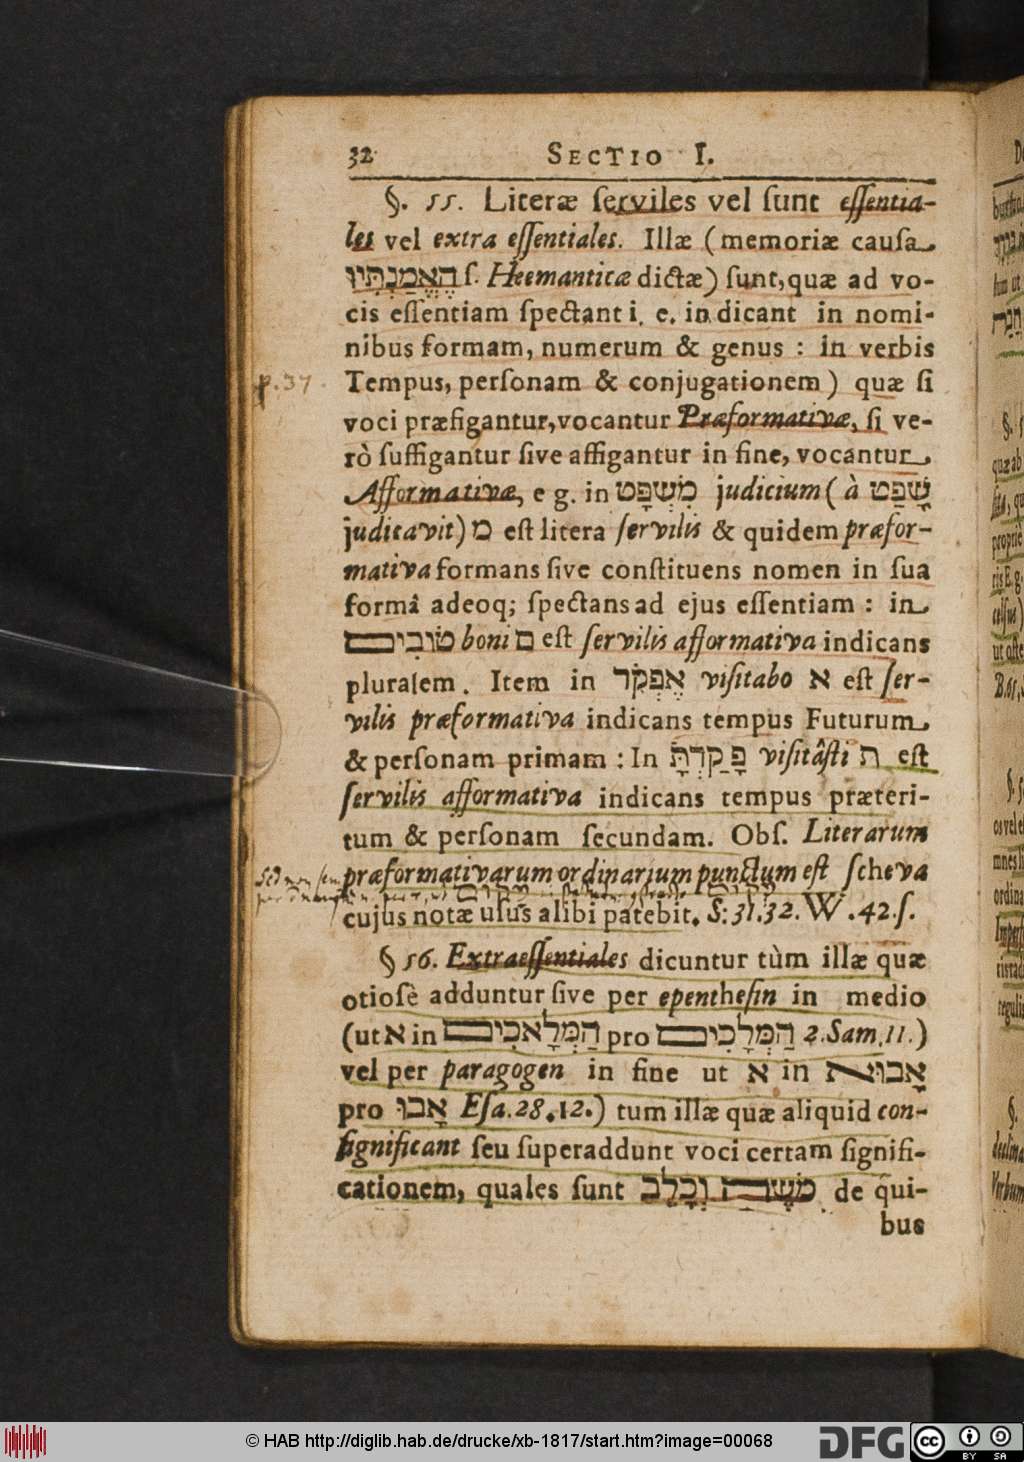 32 SECTIO I.
§. 55. Literæ ſerviles vel ſunt eſſentia-
les vel extra eſſentiales. Illæ (memoriæ cauſa
הֶאֱמַנְתִּיו ſ. Heemanticæ dictæ) ſunt, quæ ad vo-
cis eſſentiam ſpectant i. e. indicant in nomi-
nibus formam, numerum & genus : in verbis
p. 37
Tempus, perſonam & conjugationem) quæ ſi
voci præfigantur, vocantur Præformativæ, ſi ve-
rò ſuffigantur ſive affigantur in fine, vocantur
Afformativæ, e g. in מִשְׁפָּט judicium (à שָׁפַט
judicavit) מ eſt litera ſervilis & quidem præfor-
mativa formans ſive conſtituens nomen in ſua
formâ adeoq; ſpectans ad ejus eſſentiam : in
טוֹבִים boni ם eſt ſervilis afformativa indicans
pluralem. Item in אֶפְקֹד viſitabo א eſt ſer-
vilis præformativa indicans tempus Futurum
& perſonam primam : In פָּקַדְתָּ viſitâſti ת eſt
ſervilis afformativa indicans tempus præteri-
tum & perſonam ſecundam. Obſ. Literarum
præformativarum ordinarium punctum eſt ſcheva
cujus notæ uſus alibi patebit. S: 31.32. W. 42. ſ.
§ 56. Extraeſſentiales dicuntur tùm illæ quæ
otioſè adduntur ſive per epentheſin in medio
(ut א in הַמְּלָאכִים pro הַמְּלָכִים 2. Sam. 11.)
vel per paragogen in fine ut א in אָבוּא
pro אָבוּ Eſa. 28. 12.) tum illæ quæ aliquid con-
ſignificant ſeu ſuperaddunt voci certam ſignifi-
cationem, quales ſunt מֹשֶׁה וְכָלֵב de qui-
bus
© HAB http://diglib.hab.de/drucke/xb-1817/start.htm?image=00068
DFG
cc BY SA